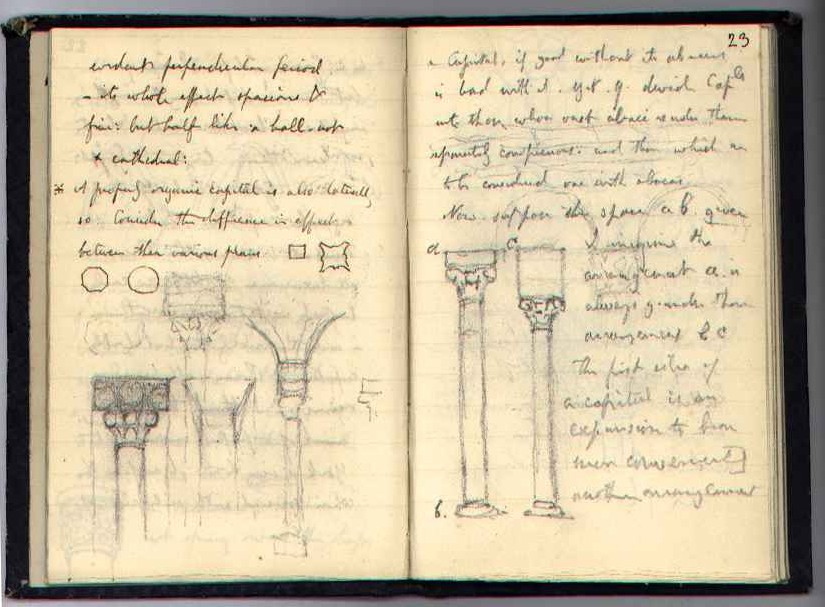 perpendicular period
- its whole effect spacious &
fine: but half like a hall not
a cathedral:
* A properly organic capital is also laterally
so. Consider the difference in effect
between the various plans
23
a Capital, if good without its abacus
is bad with it. yet divide Capls
into those whose vast abaci render them
separately conspicuous: and those which are
to be considered one with abacus
Now suppose the space a b given
a
c
& imagine the
arrangement a. is
always grander than
arrangement b c
The first idea of
a capital is an
expansion to bear
more convenient]
another arrangement
b.